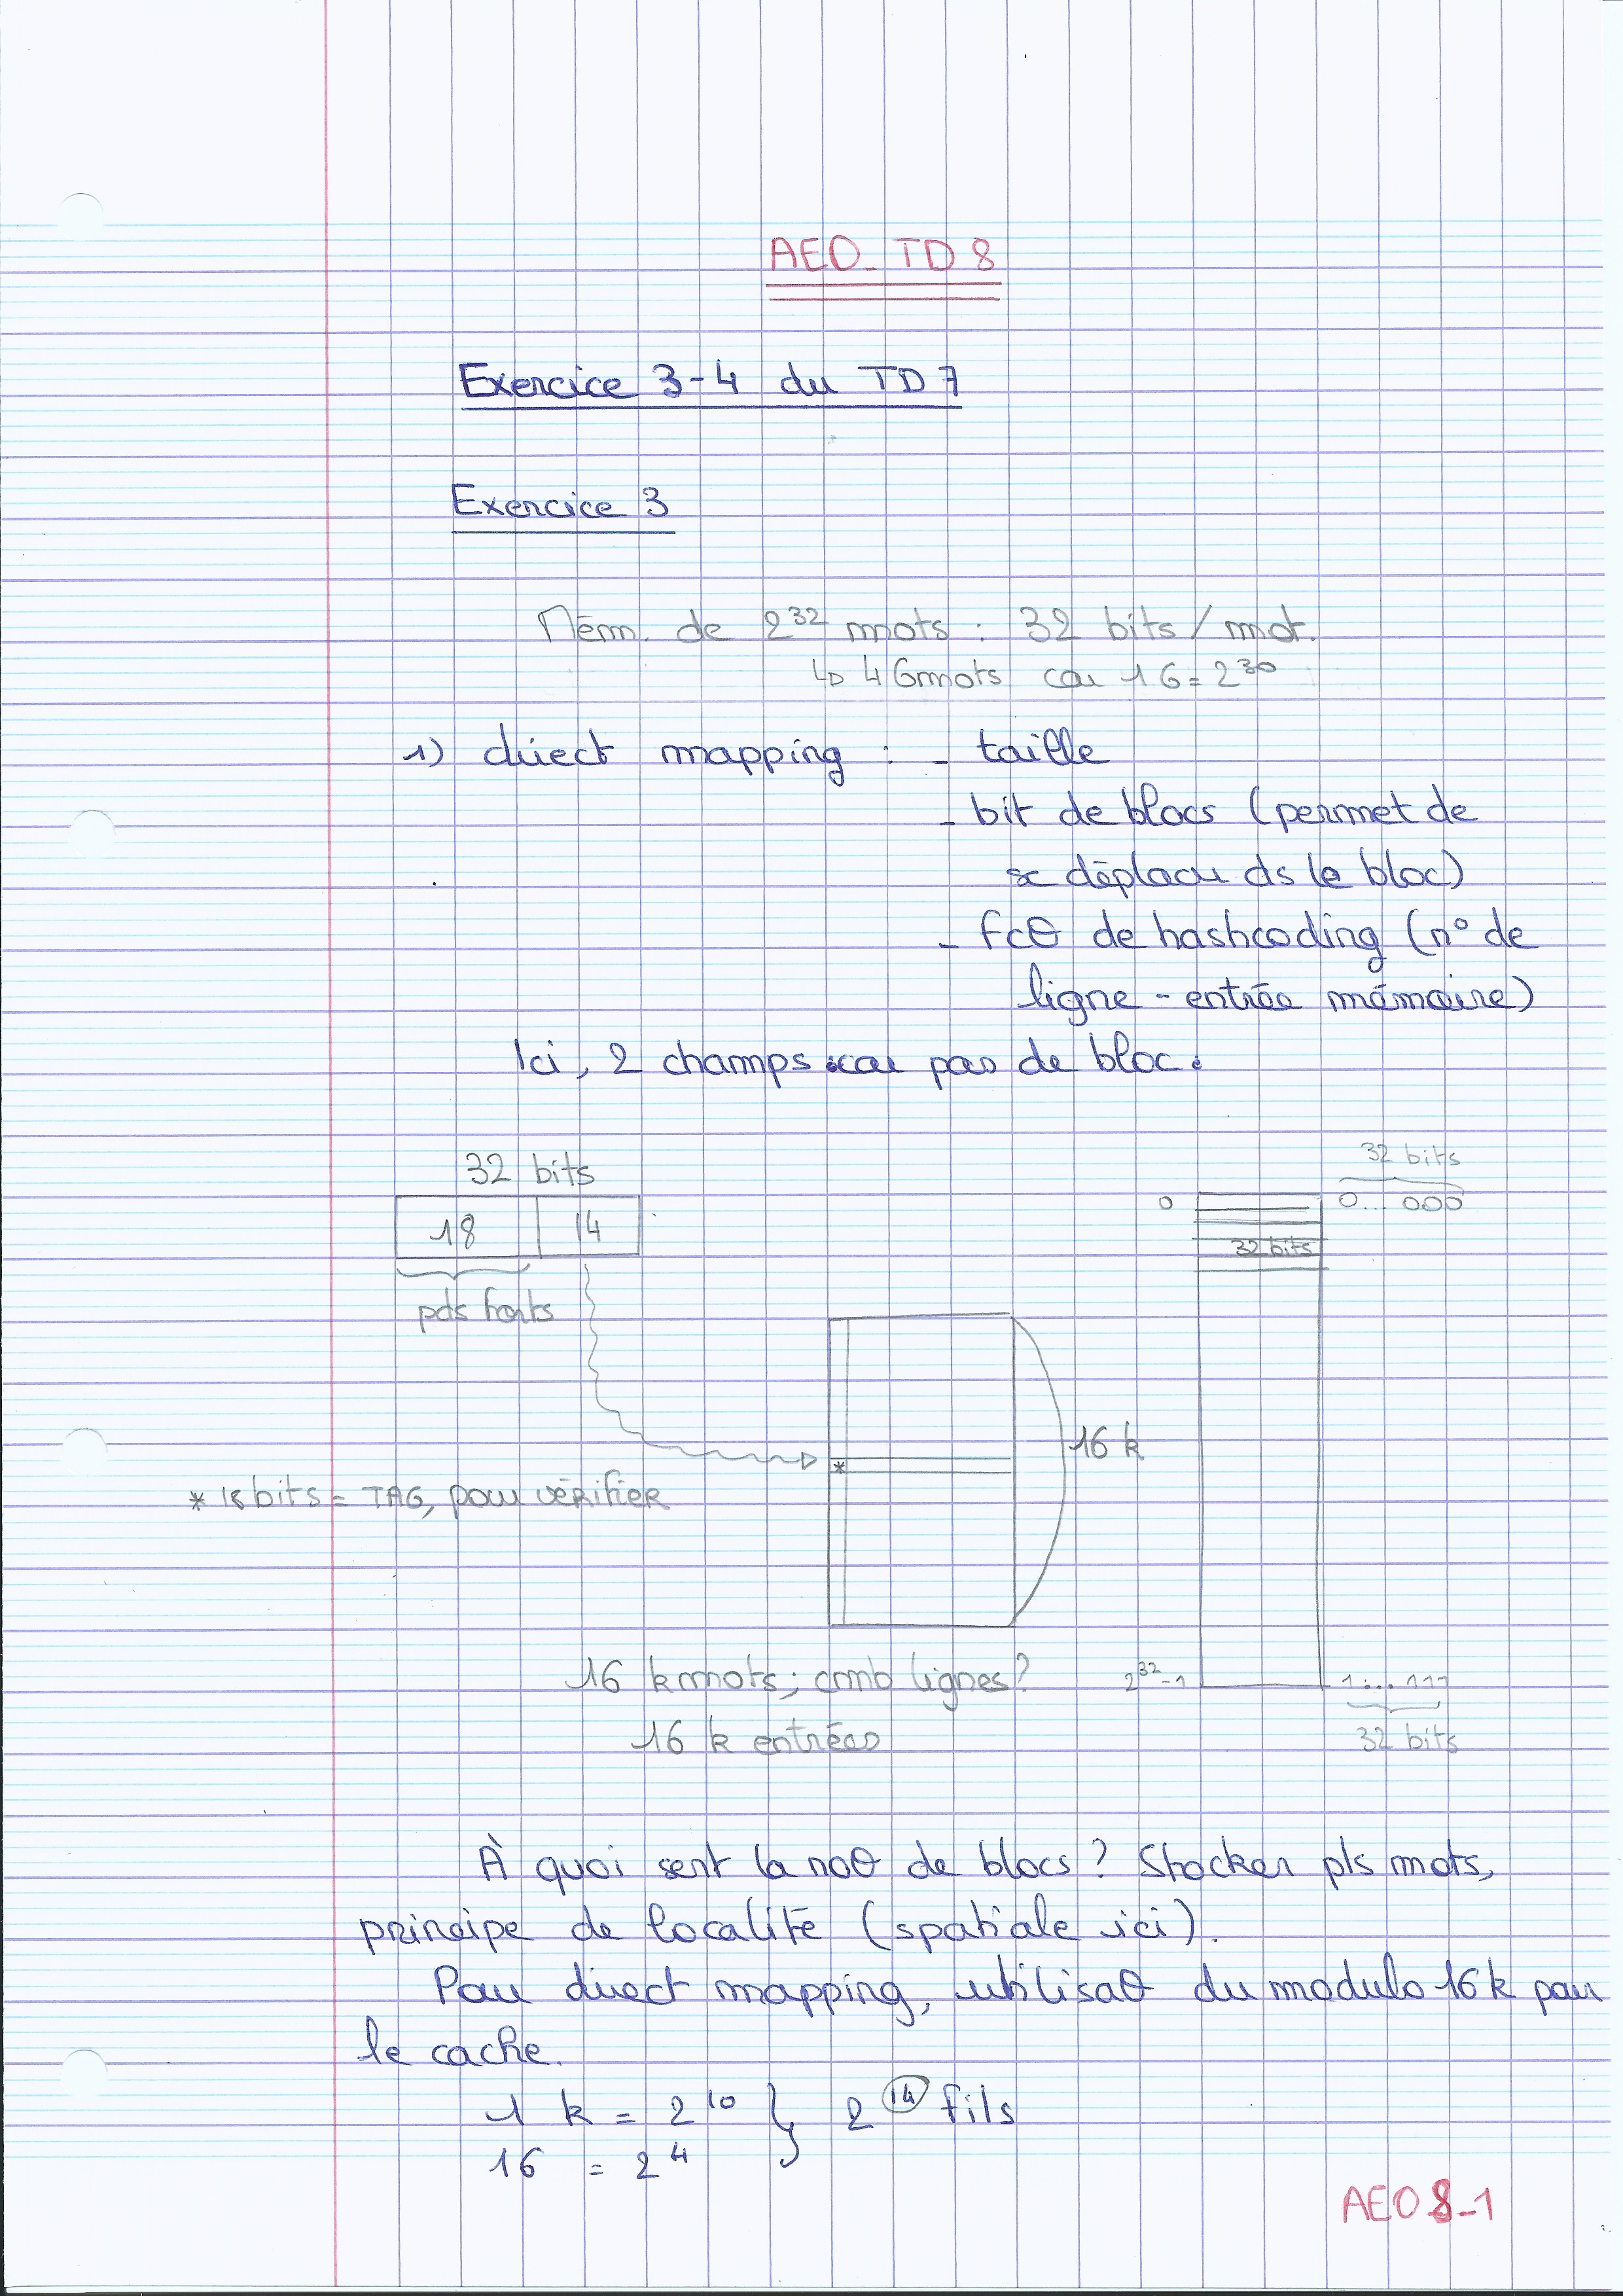 AEO_TD 8
Exercice 3-4 du TD 7
Exercice 3
Mém. de 2³² mots : 32 bits/mot.
↳ 4 Gmots car 1G = 2³⁰
1) direct mapping : - taille
- bit de blocs (permet de
se déplacer ds le bloc)
- fcθ de hashcoding (n° de
ligne - entrée mémoire)
Ici, 2 champs car pas de bloc.
32 bits
18 14
pds forts
32 bits
0 0... 000
32 bits
16 k
*
* 18 bits = TAG, pour vérifier
16 kmots ; cmb lignes ?
16 k entrées
2³²-1 1... 111
32 bits
À quoi sert la noθ de blocs ? Stocker pls mots,
principe de localité (spatiale ici).
Pour direct mapping, utilisaθ du modulo 16 k pour
le cache.
1 k = 2¹⁰ } 2¹⁴ fils
16 = 2⁴
AEO 8-1